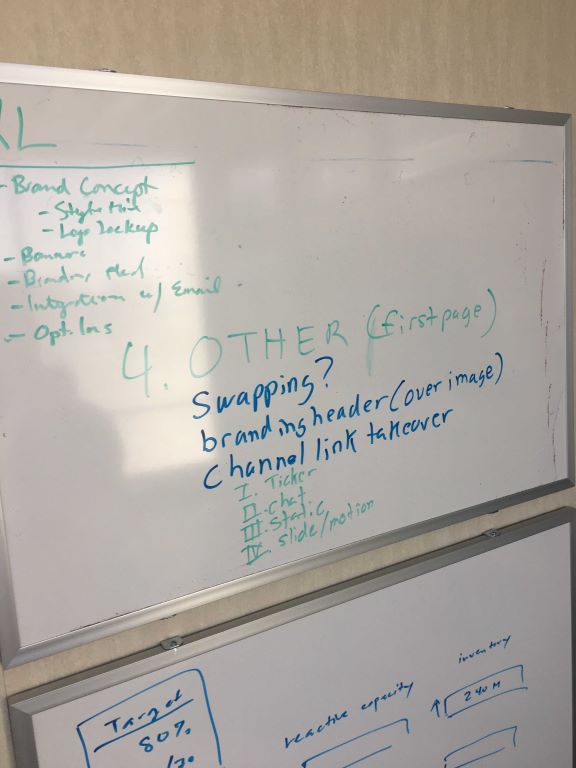 RL
- Brand Concept
- Style
- Logo Lockup
- Banners
-
- Integration w/ Email
- Opt-Ins
4. OTHER (first page)
Swapping?
branding header (over image)
Channel link takeover
I. Ticker
II. chat
III. Static
IV. slide/motion
inventory
240 M
reactive capacity
Target
80%